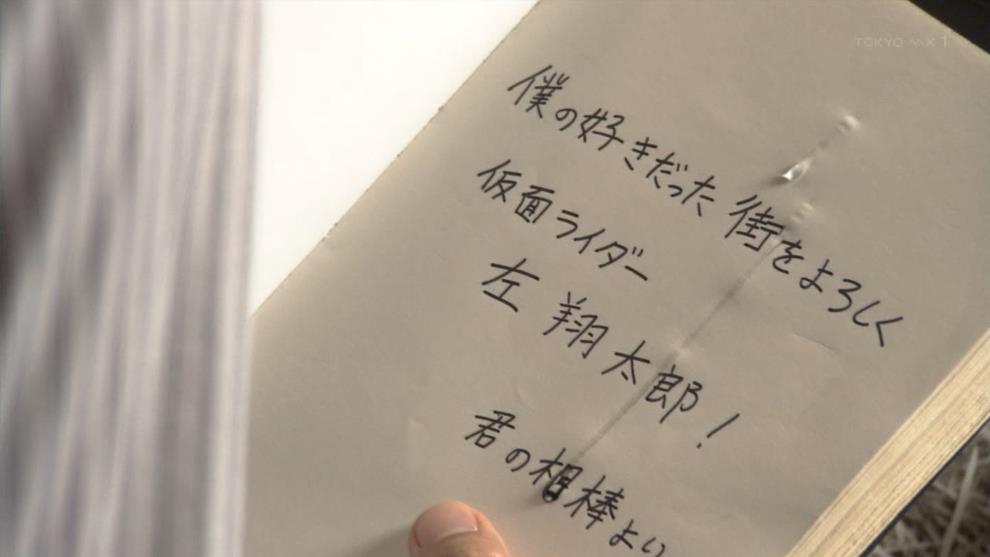 TOKYO MX 1
僕の好きだった街をよろしく
仮面ライダー
左 翔太郎!
君の相棒より